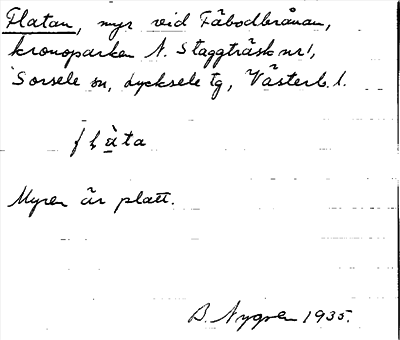 Flatan, myr vid Fäbodbrånan,
kronoparken N. Staggträsk nr 1,
Sorsele sn, Lycksele tg, Västerb. l.
flàta
Myren är platt.
B. Nygren 1935.